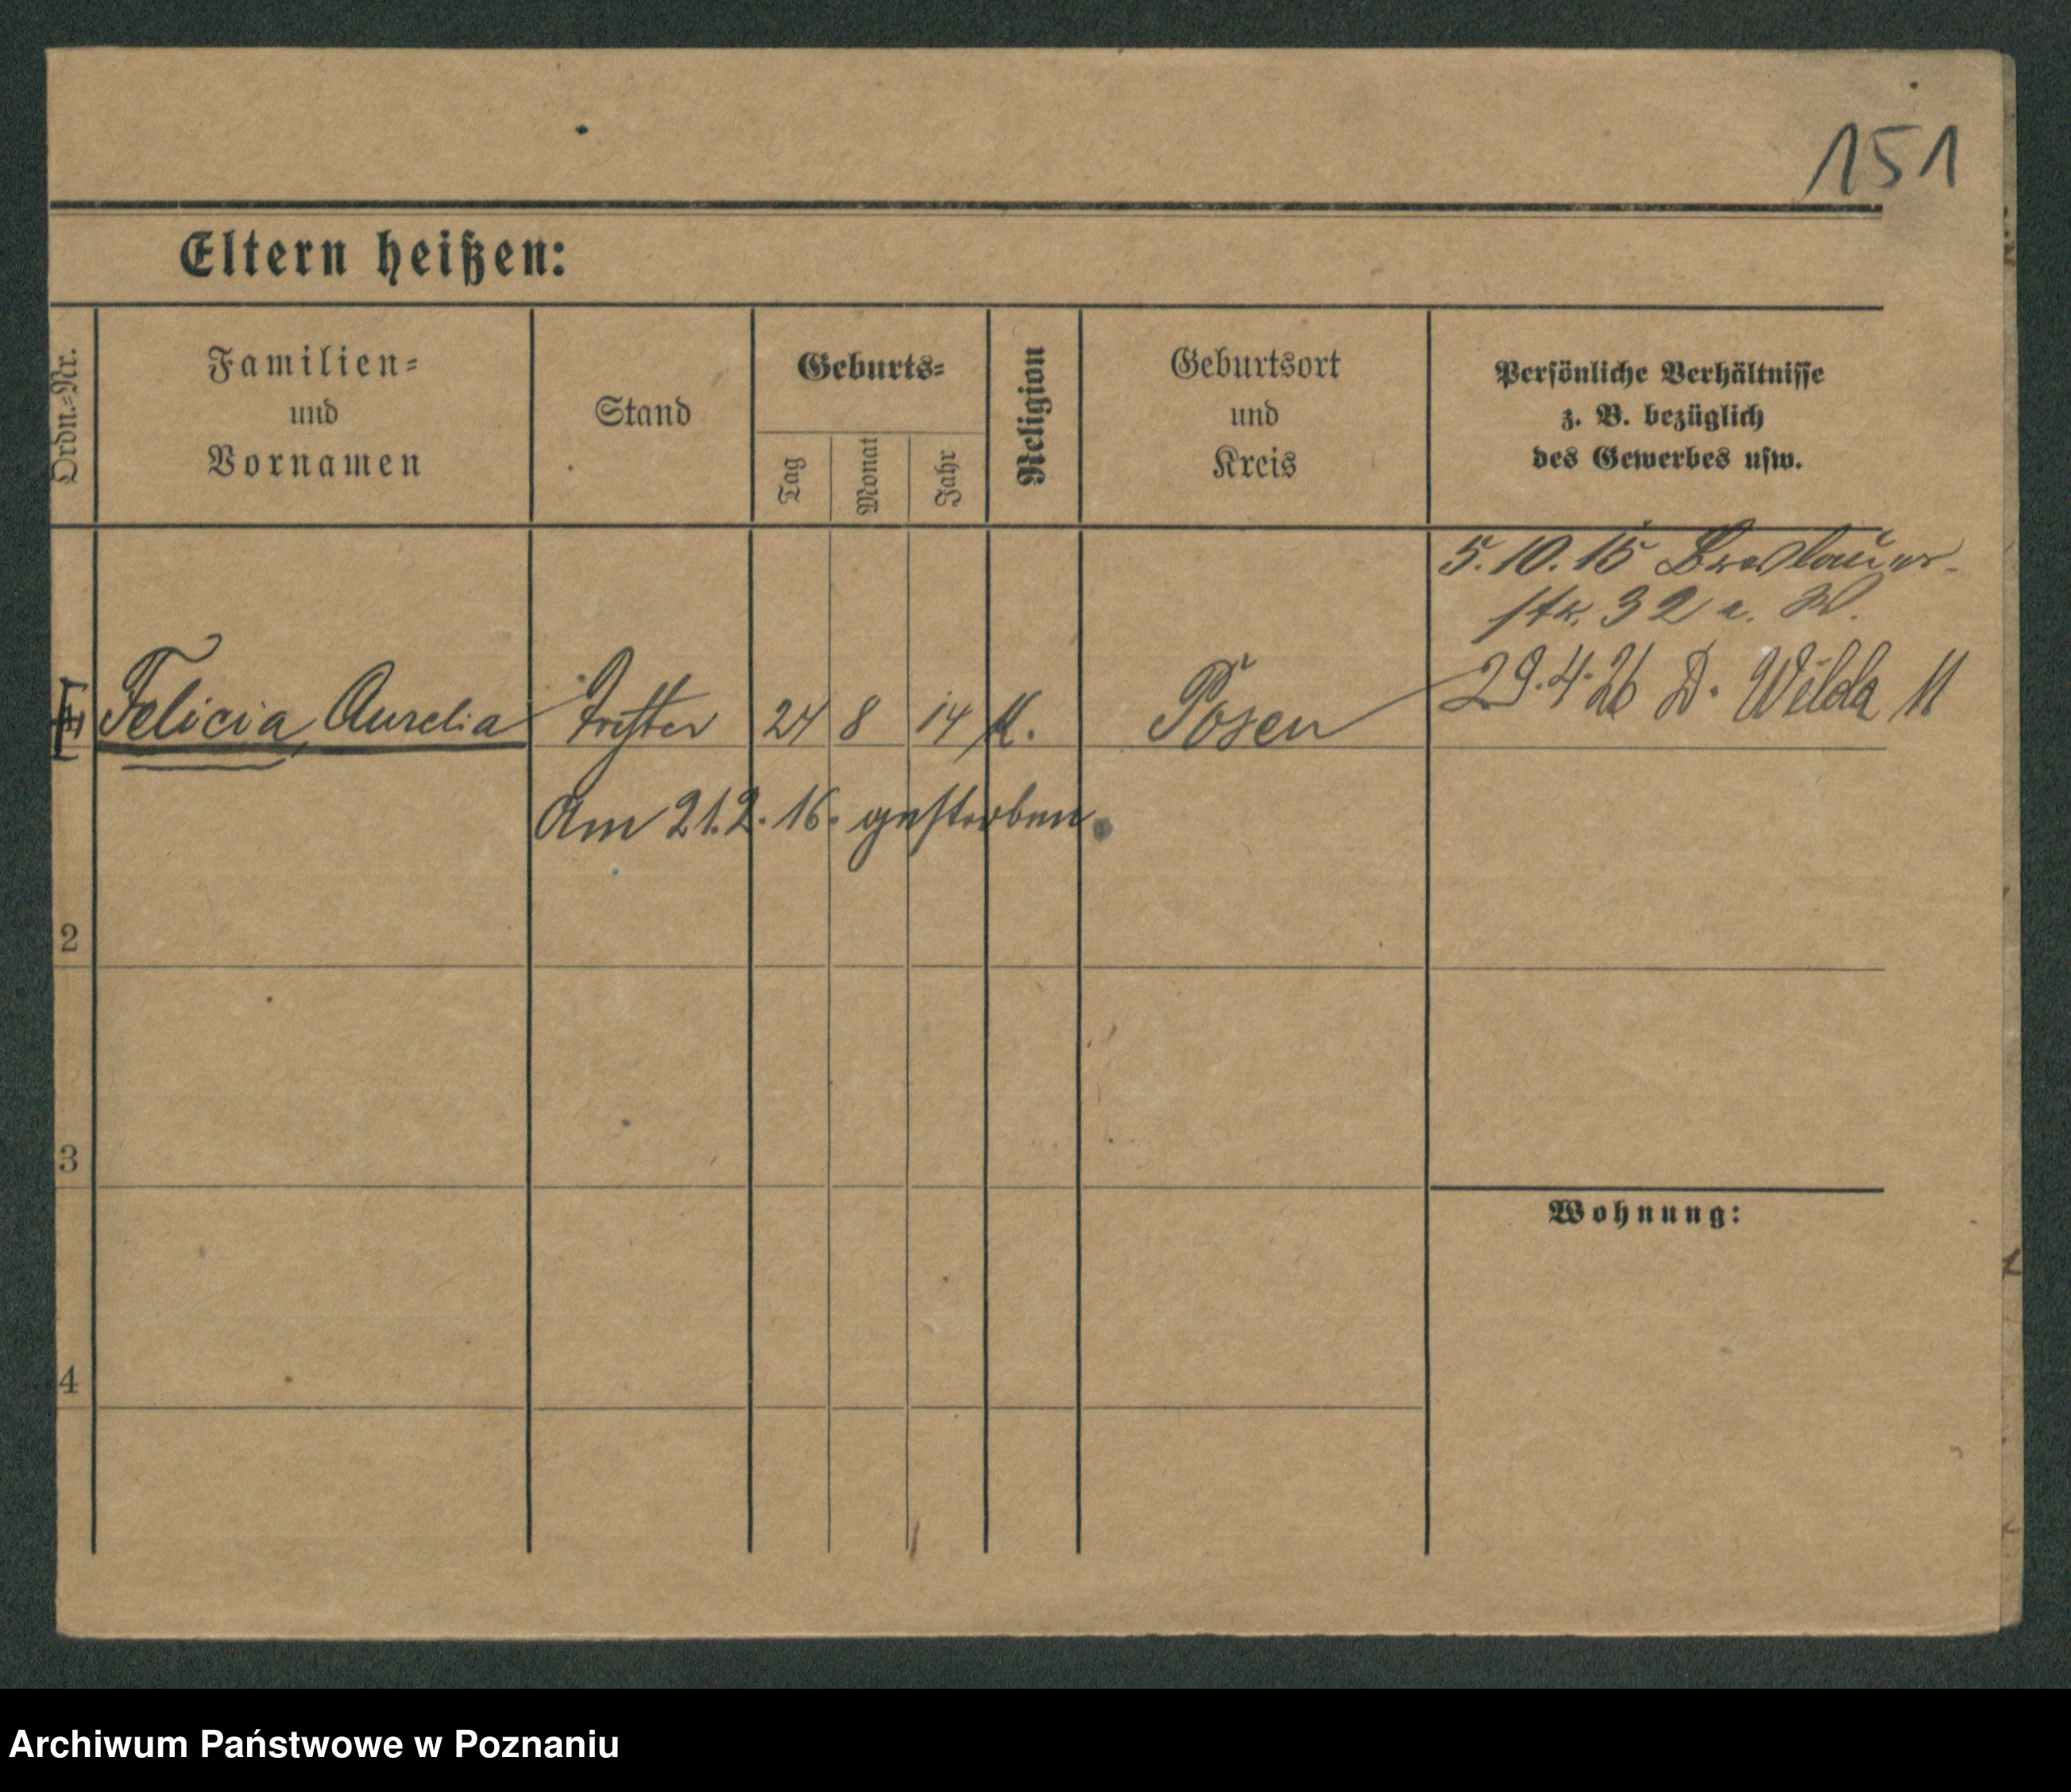 151
Eltern heißen:
Ordn.=Nr.
Familien=
und
Vornamen
Stand
Geburts=
Tag
Monat
Jahr
Religion
Geburtsort
und
Kreis
Persönliche Verhältnisse
z. B. bezüglich
des Gewerbes usw.
5.10.15 Breslauer-
str. 32 a. W.
Felicia, Aurelia Tochter 24 8 14 K. Posen 29.4.26 D. Wilda 11
Am 21.2.16. gestorben.
2
3
Wohnung:
4
Archiwum Państwowe w Poznaniu